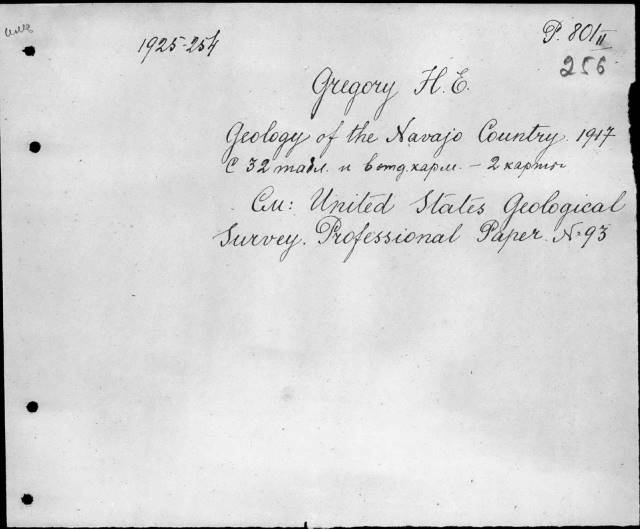 1925-254
P. 801 II
256
Gregory H. E.
Geology of the Navajo Country. 1917
С 32 табл. и в отд. карм. – 2 карты
См: United States Geological
Survey. Professional Paper. № 93